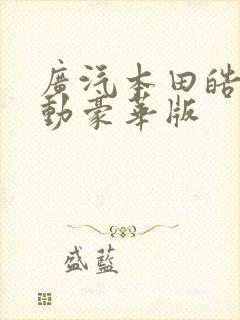 廣汽本田皓
動豪華版
盛藍